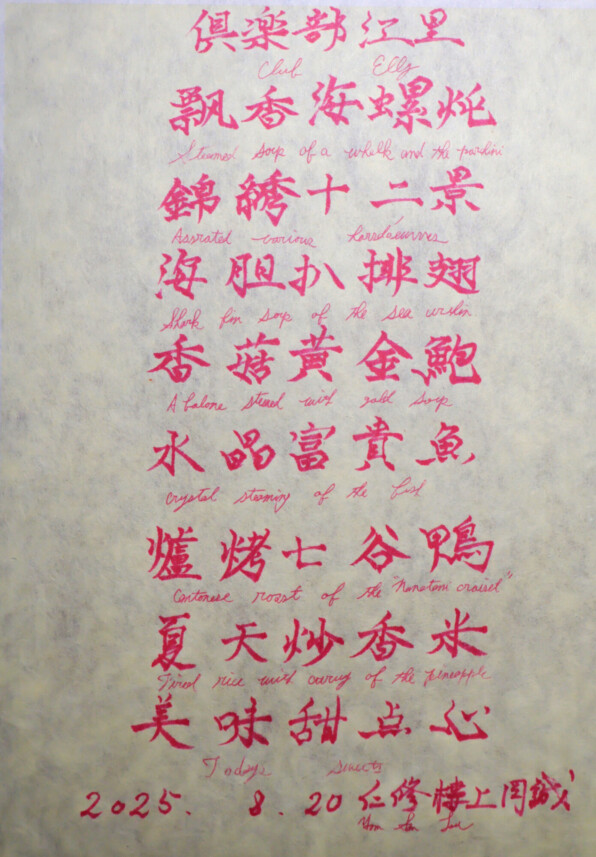 倶楽部 江里
Club Elly
飄香海螺炖
Steamed soup of a whelk and the
錦繍十二景
Assrated various horsdœuvres
海胆扒排翅
Shark fin soup of the sea urchin
香菇黄金鮑
Abalone stewed with gold soup
水晶富貴魚
Crystal steaming of the fish
爐烤七谷鴨
Cantonese roast of the "Nanatani
夏天炒香米
Fired rice with curry of the pineapple
美味甜点心
Todays sweets
2025. 8. 20 仁修樓上岡誠